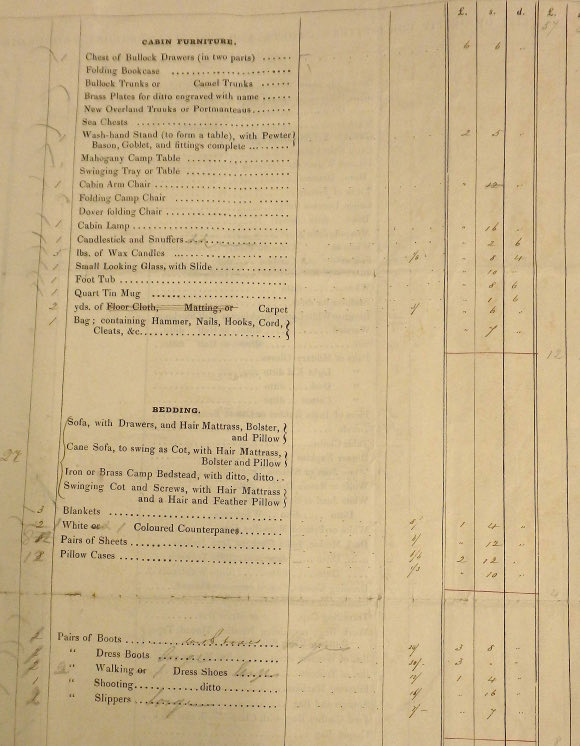 £. s. d. £.
CABIN FURNITURE.
1 Chest of Bullock Drawers (in two parts) ...... 6 6 "
Folding Bookcase
Bullock Trunks or Camel Trunks ......
Brass Plates for ditto engraved with name ......
New Overland Trunks or Portmanteaus
Sea Chests
Wash-hand Stand (to form a table), with Pewter 2 5
Bason, Goblet, and fittings complete
Mahogany Camp Table
Swinging Tray or Table
1 Cabin Arm Chair " 12
Folding Camp Chair
Dover folding Chair
1 Cabin Lamp " 16
1 Candlestick and Snuffers " 2 6
5 lbs. of Wax Candles " 8 4
1 Small Looking Glass, with Slide " 10
1 Foot Tub " 8 6
1 Quart Tin Mug " 1 6
2 yds. of Floor Cloth, Matting, or Carpet 3/ " 6
1 Bag; containing Hammer, Nails, Hooks, Cord, " 7
Cleats, &c.
12
BEDDING.
Sofa, with Drawers, and Hair Mattrass, Bolster,
and Pillow
Cane Sofa, to swing as Cot, with Hair Mattrass,
Bolster and Pillow
Iron or Brass Camp Bedstead, with ditto, ditto..
Swinging Cot and Screws, with Hair Mattrass
and a Hair and Feather Pillow
3 Blankets 8/ 1 4 "
2 White or 1 Coloured Counterpanes 6/ " 12 "
Pairs of Sheets 2 12
Pillow Cases " 10
Pairs of Boots 3 8 "
" Dress Boots 3 "
" Walking or Dress Shoes 1 4 "
1 " Shooting ditto " 16 "
" Slippers " 7 "